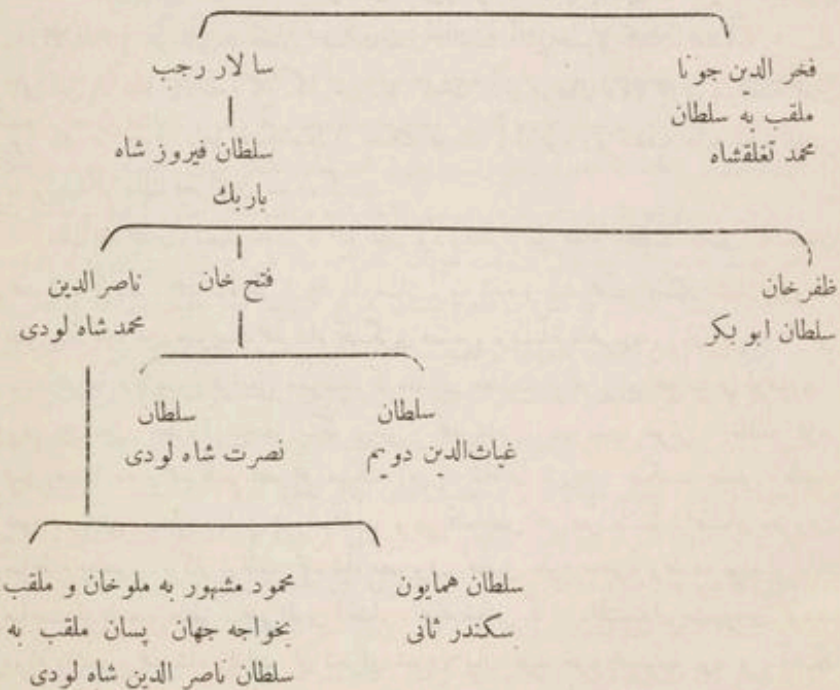 فخر الدین جونا
ملقب به سلطان
محمد تغلقشاه
سالار رجب
سلطان فیروز شاه
باربك
ظفرخان
سلطان ابو بکر
فتح خان
ناصر الدین
محمد شاه لودی
سلطان
غیاث‌الدین دویم
سلطان
نصرت شاه لودی
سلطان همایون
سکندر ثانی
محمود مشهور به ملوخان و ملقب
بخواجه جهان پسان ملقب به
سلطان ناصر الدین شاه لودی